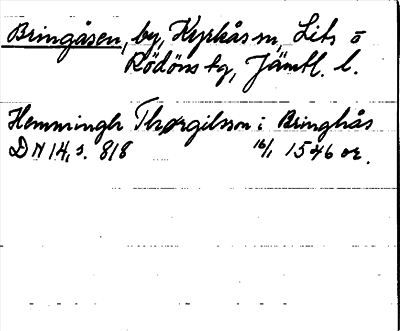 Bringåsen, by, Kyrkås sn, Lits o
Rödöns tg, Jämtl. l.
Hemmingh Thorgilsson i Bringhås
DN 14, s. 818 16/1 1546 or.